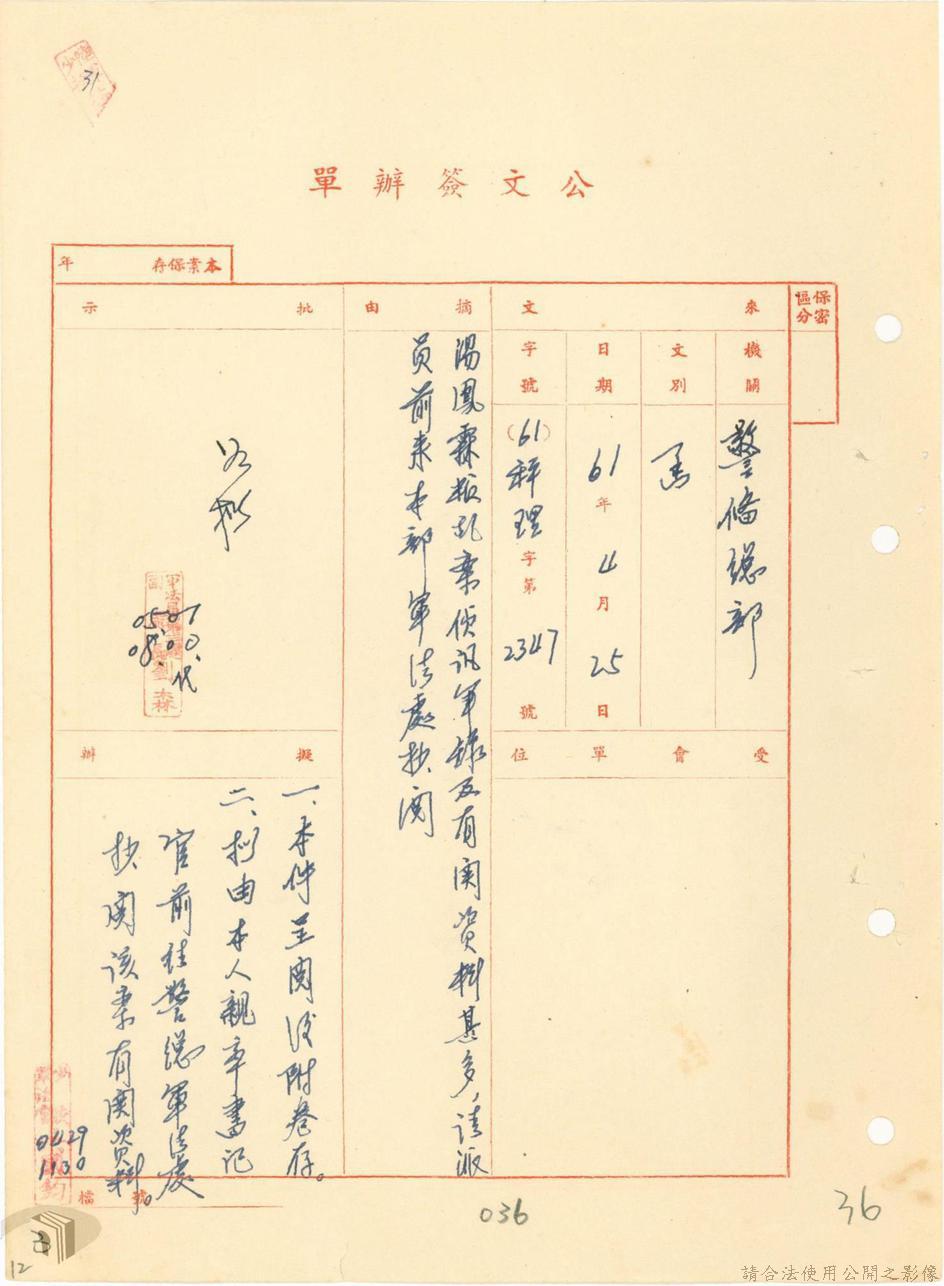 31
公文簽辦單
本案保存 年
保密區分
來文
機關
警備總部
文別
函
日期
61年4月25日
字號
(61)秤理字第2347號
摘由
湯鳳霖叛乱案偵訊筆錄及有関資料甚多,請派
員前來本部軍法處抄閱
批示
如擬
05.07
08.00.
代
受會單位
擬辦
一、本件呈閱後附卷存。
二、擬由本人親率書記
官前往警總軍法處
抄閱該案有関資料。
0429
1130
檔號
036
36
3
12
請合法使用公開之影像